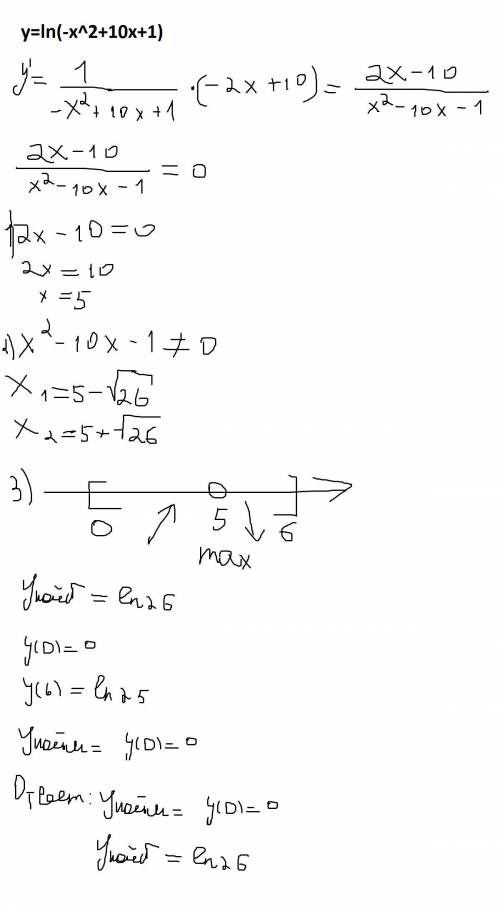 y=ln(-x^2+10x+1)
y' = 1/(-x²+10x+1) · (-2x+10) = (2x-10)/(x²-10x-1)
(2x-10)/(x²-10x-1) = 0
1) 2x-10=0
2x=10
x=5
2) x²-10x-1≠0
x₁=5-√26
x₂=5+√26
3)
0 5 6
max
Yнаиб = ln26
y(0)=0
y(6)=ln25
Yнаим= y(0)=0
Ответ: Yнаим= y(0)=0
Yнаиб = ln26